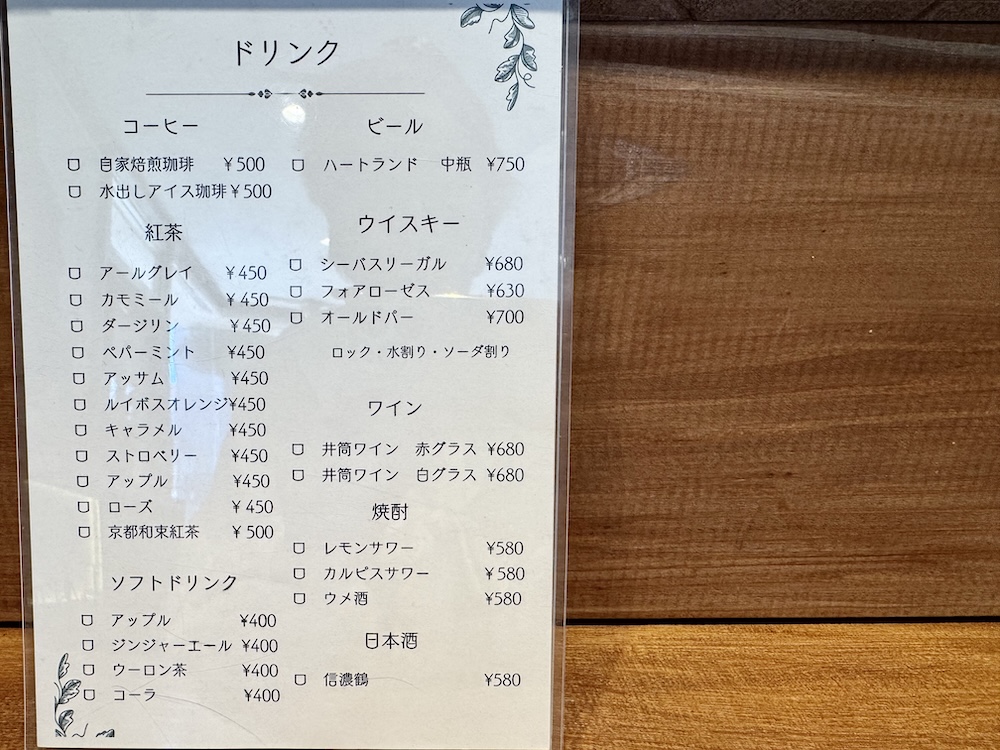 ドリンク
コーヒー
自家焙煎珈琲 ¥500
水出しアイス珈琲 ¥500
紅茶
アールグレイ ¥450
カモミール ¥450
ダージリン ¥450
ペパーミント ¥450
アッサム ¥450
ルイボスオレンジ ¥450
キャラメル ¥450
ストロベリー ¥450
アップル ¥450
ローズ ¥450
京都和束紅茶 ¥500
ソフトドリンク
アップル ¥400
ジンジャーエール ¥400
ウーロン茶 ¥400
コーラ ¥400
ビール
ハートランド 中瓶 ¥750
ウイスキー
シーバスリーガル ¥680
フォアローゼス ¥630
オールドパー ¥700
ロック・水割り・ソーダ割り
ワイン
井筒ワイン 赤グラス ¥680
井筒ワイン 白グラス ¥680
焼酎
レモンサワー ¥580
カルピスサワー ¥580
ウメ酒 ¥580
日本酒
信濃鶴 ¥580